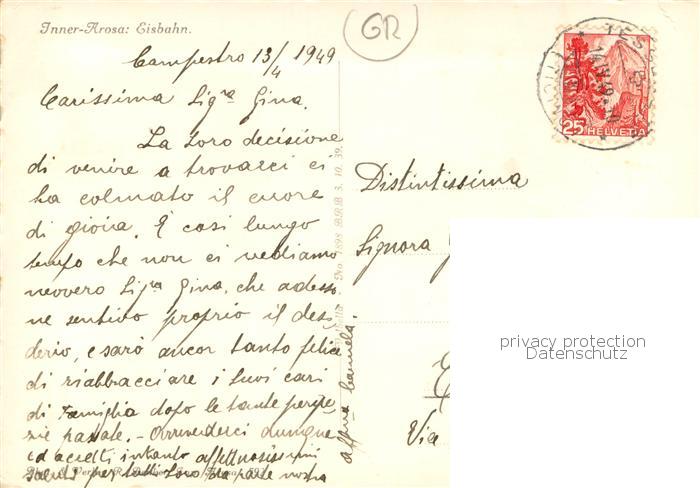 Inner-Arosa: Eisbahn.
GR
Campestro 13/4 1949
Carissima Sig.ra Gina.
La loro decisione
di venire a trovarci ci
ha colmato il cuore
di gioia. È così lungo
tempo che non ci vediamo
nevvero Sig.ra Gina, che adesso
ne sentivo proprio il desi-
derio, e sarò ancor tanto felice
di riabbracciare i suoi cari
di famiglia dopo le tante peripe-
zie passate. - Arrivederci dunque
ed accetti intanto affettuosissimi
saluti per tutti loro da parte nostra
No 1898 BRB 3. 10. 39.
25 HELVETIA
Distintissima
Signora
Via
privacy protection
Datenschutz